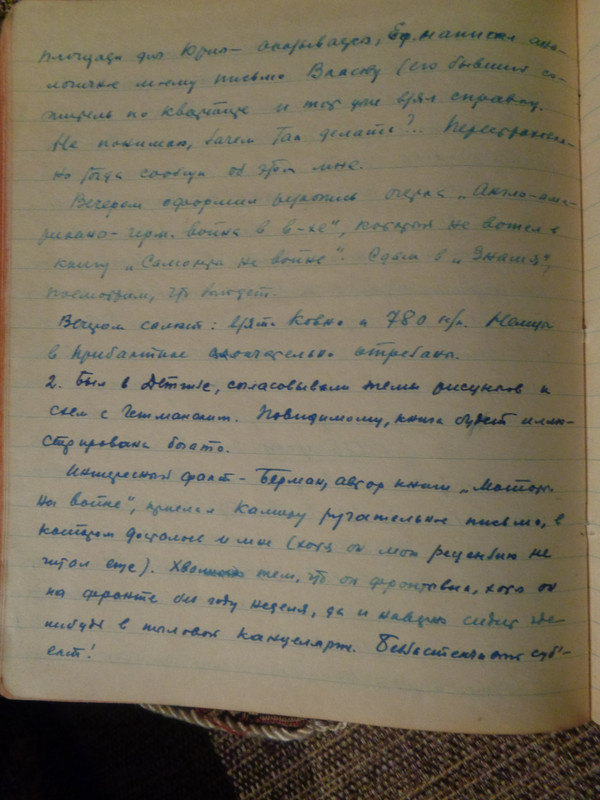 площади для Юрия - оказывается, Еф. написал ана-
логичное моему письмо Власову (его бывший со-
житель по квартире и тот уже взял справку.
Не понимаю, зачем так делать?.. 
но тогда сообщи об этом мне.
Вечером оформил рукопись очерка „Англо-аме-
рикано-герм. война в в-хе", который не вошел в
книгу „Самолеты на войне". Сдам в „Знамя",
посмотрим, что выйдет.
Вечером салют: взят Ковно и 780 н/п. Немцы
в Прибалтике окончательно отрезаны.
2. Был в Детгизе, согласовывали темы рисунков и
схем с Гетманским. Повидимому, книга будет иллю-
стрирована богато.
Интересный факт - Берман, автор книги „
на войне", прислал Камиру ругательное письмо, в
котором досталось и мне (хотя он мою рецензию не
читал еще). тем, что он фронтовик, хотя он
на фронте без году неделя, да и наверно сидит где-
нибудь в тыловой канцелярии. субъ-
ект!